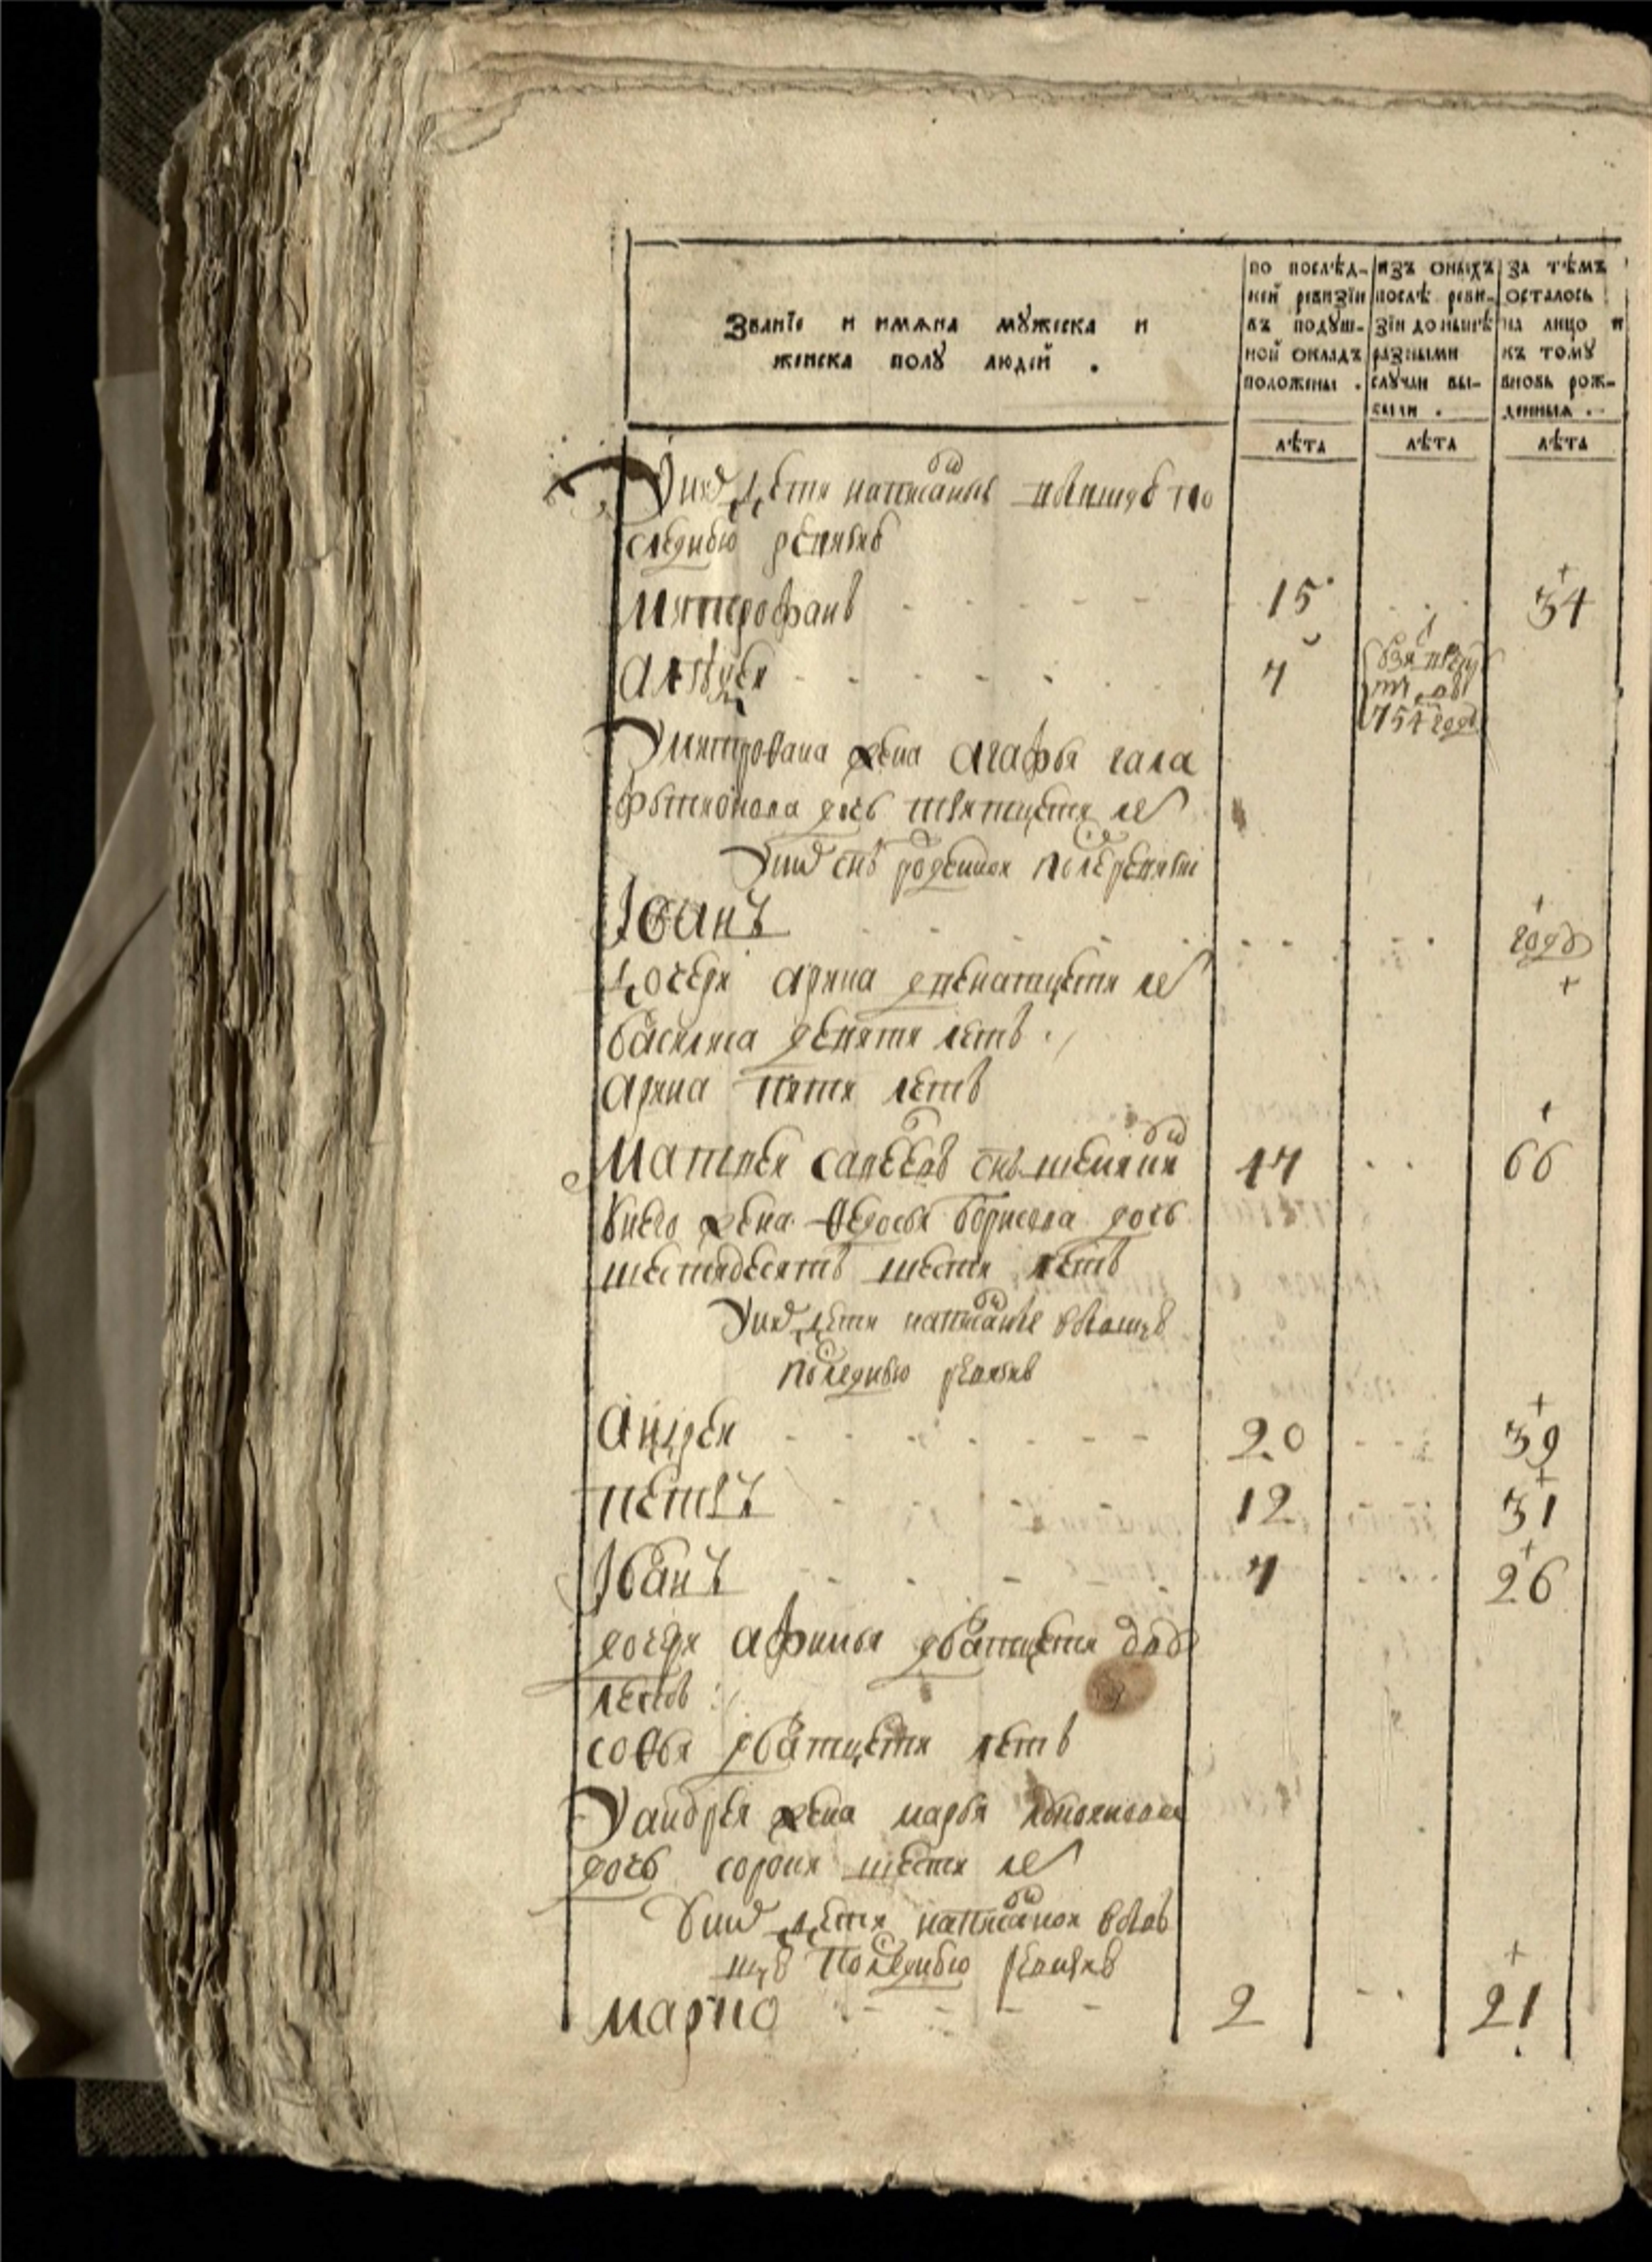 Званїе и имѧна мꙋжеска и
женска полꙋ людей .
по послѣд-
ней ревизїи
въ подꙋш-
ной окладъ
положены .
изъ оныхъ
послѣ реви-
зїи до нынѣ
разными
слꙋчаи вы-
были .
за тѣмъ
осталось
на лицо и
къ тому
вновь рож-
денныя .
лѣта лѣта лѣта
У них дети написанные в бывшую по
следнюю ревизию
Митрофанъ 15 34
Алѣксеи 7 взят в рекру
ты в
754 году
У митрофана жена агафья гала
фтионова дочь тритцети ле
У них снъ рожденнои после ревизии
Іванъ году
дочери арина двенатцети ле
василиса девяти летъ
арина пяти летъ
Матвеи савелевъ снъ 47 66
У него жена Ѳедосья борисова дочь
шестидесятъ шести летъ
У них дети написанные в бывшую
последнюю ревизию
Андреи 20 39
Петръ 12 31
Іванъ 7 26
дочери афимья дватцети
летъ
соѳья дватцети летъ
У андрея жена марья
дочь сорока шести ле
У них дети написанои в быв
шую последнюю ревизию
марко 2 21